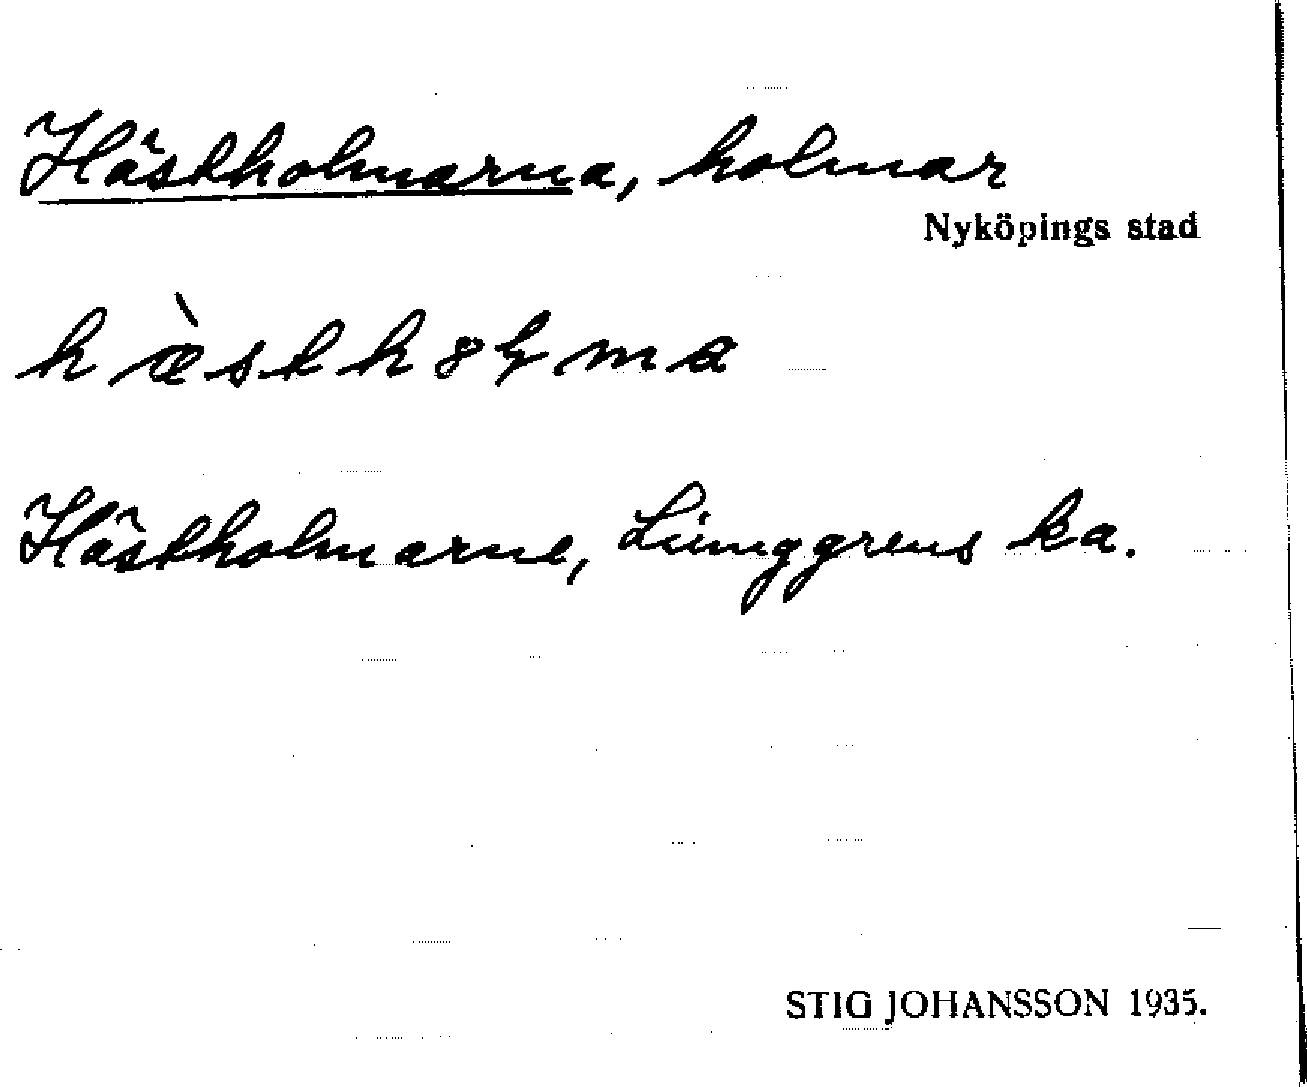 Hästholmarna, holmar
Nyköpings stad
hæ̀sthȣɫma
Hästholmarne, Ljunggrens ka.
STIG JOHANSSON 1935.